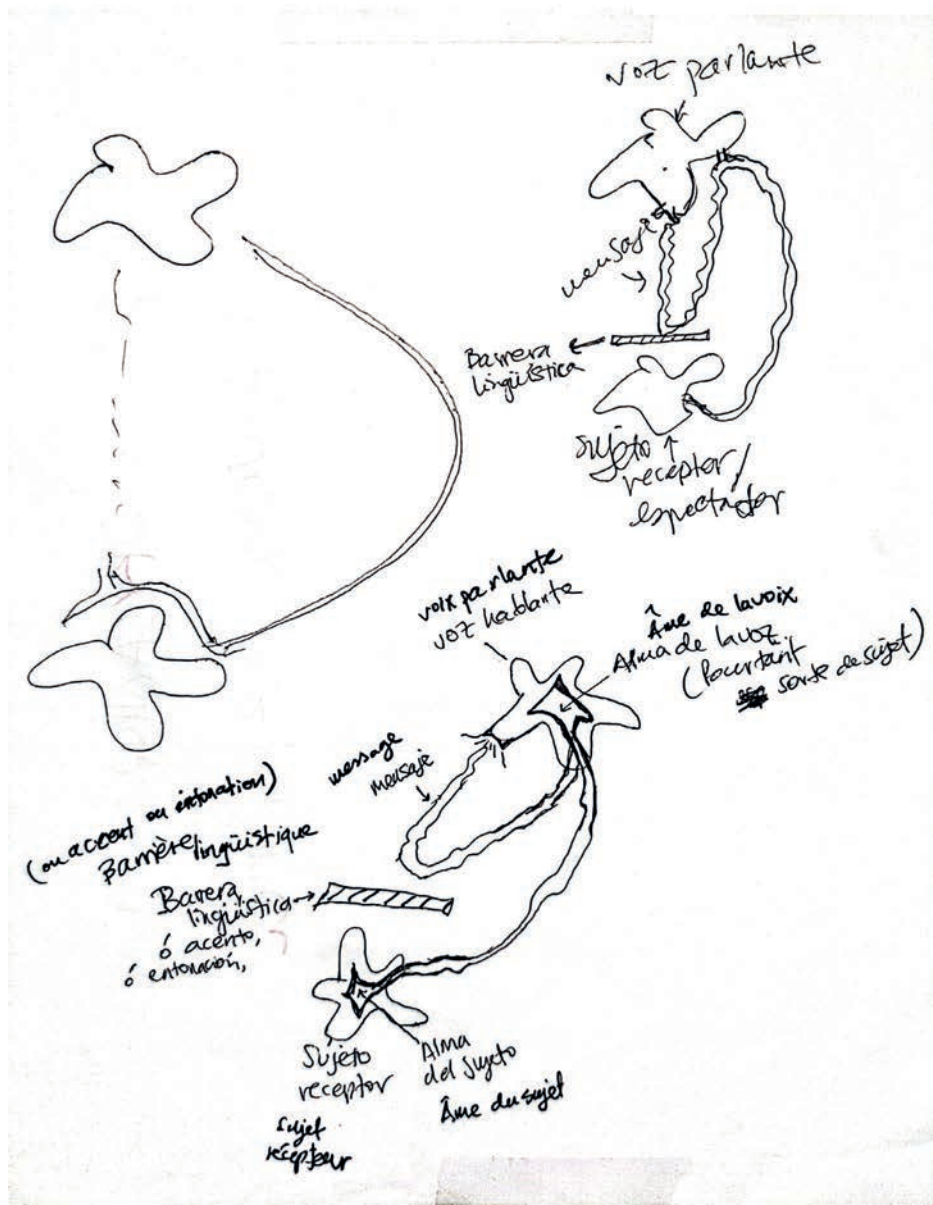 voz parlante
mensaje
Barrera
lingüística
Sujeto
receptor/
espectador
voix parlante
voz hablante
Âme de la voix
Alma de la voz.
(Pourtant
sorte de sujet)
message
mensaje
(ou accent ou intonation)
Barrière lingüistique
Barera
lingüística
ó acento,
ó entonación,
Sujeto
receptor
Alma
del Sujeto
Âme du sujet
sujet
récepteur